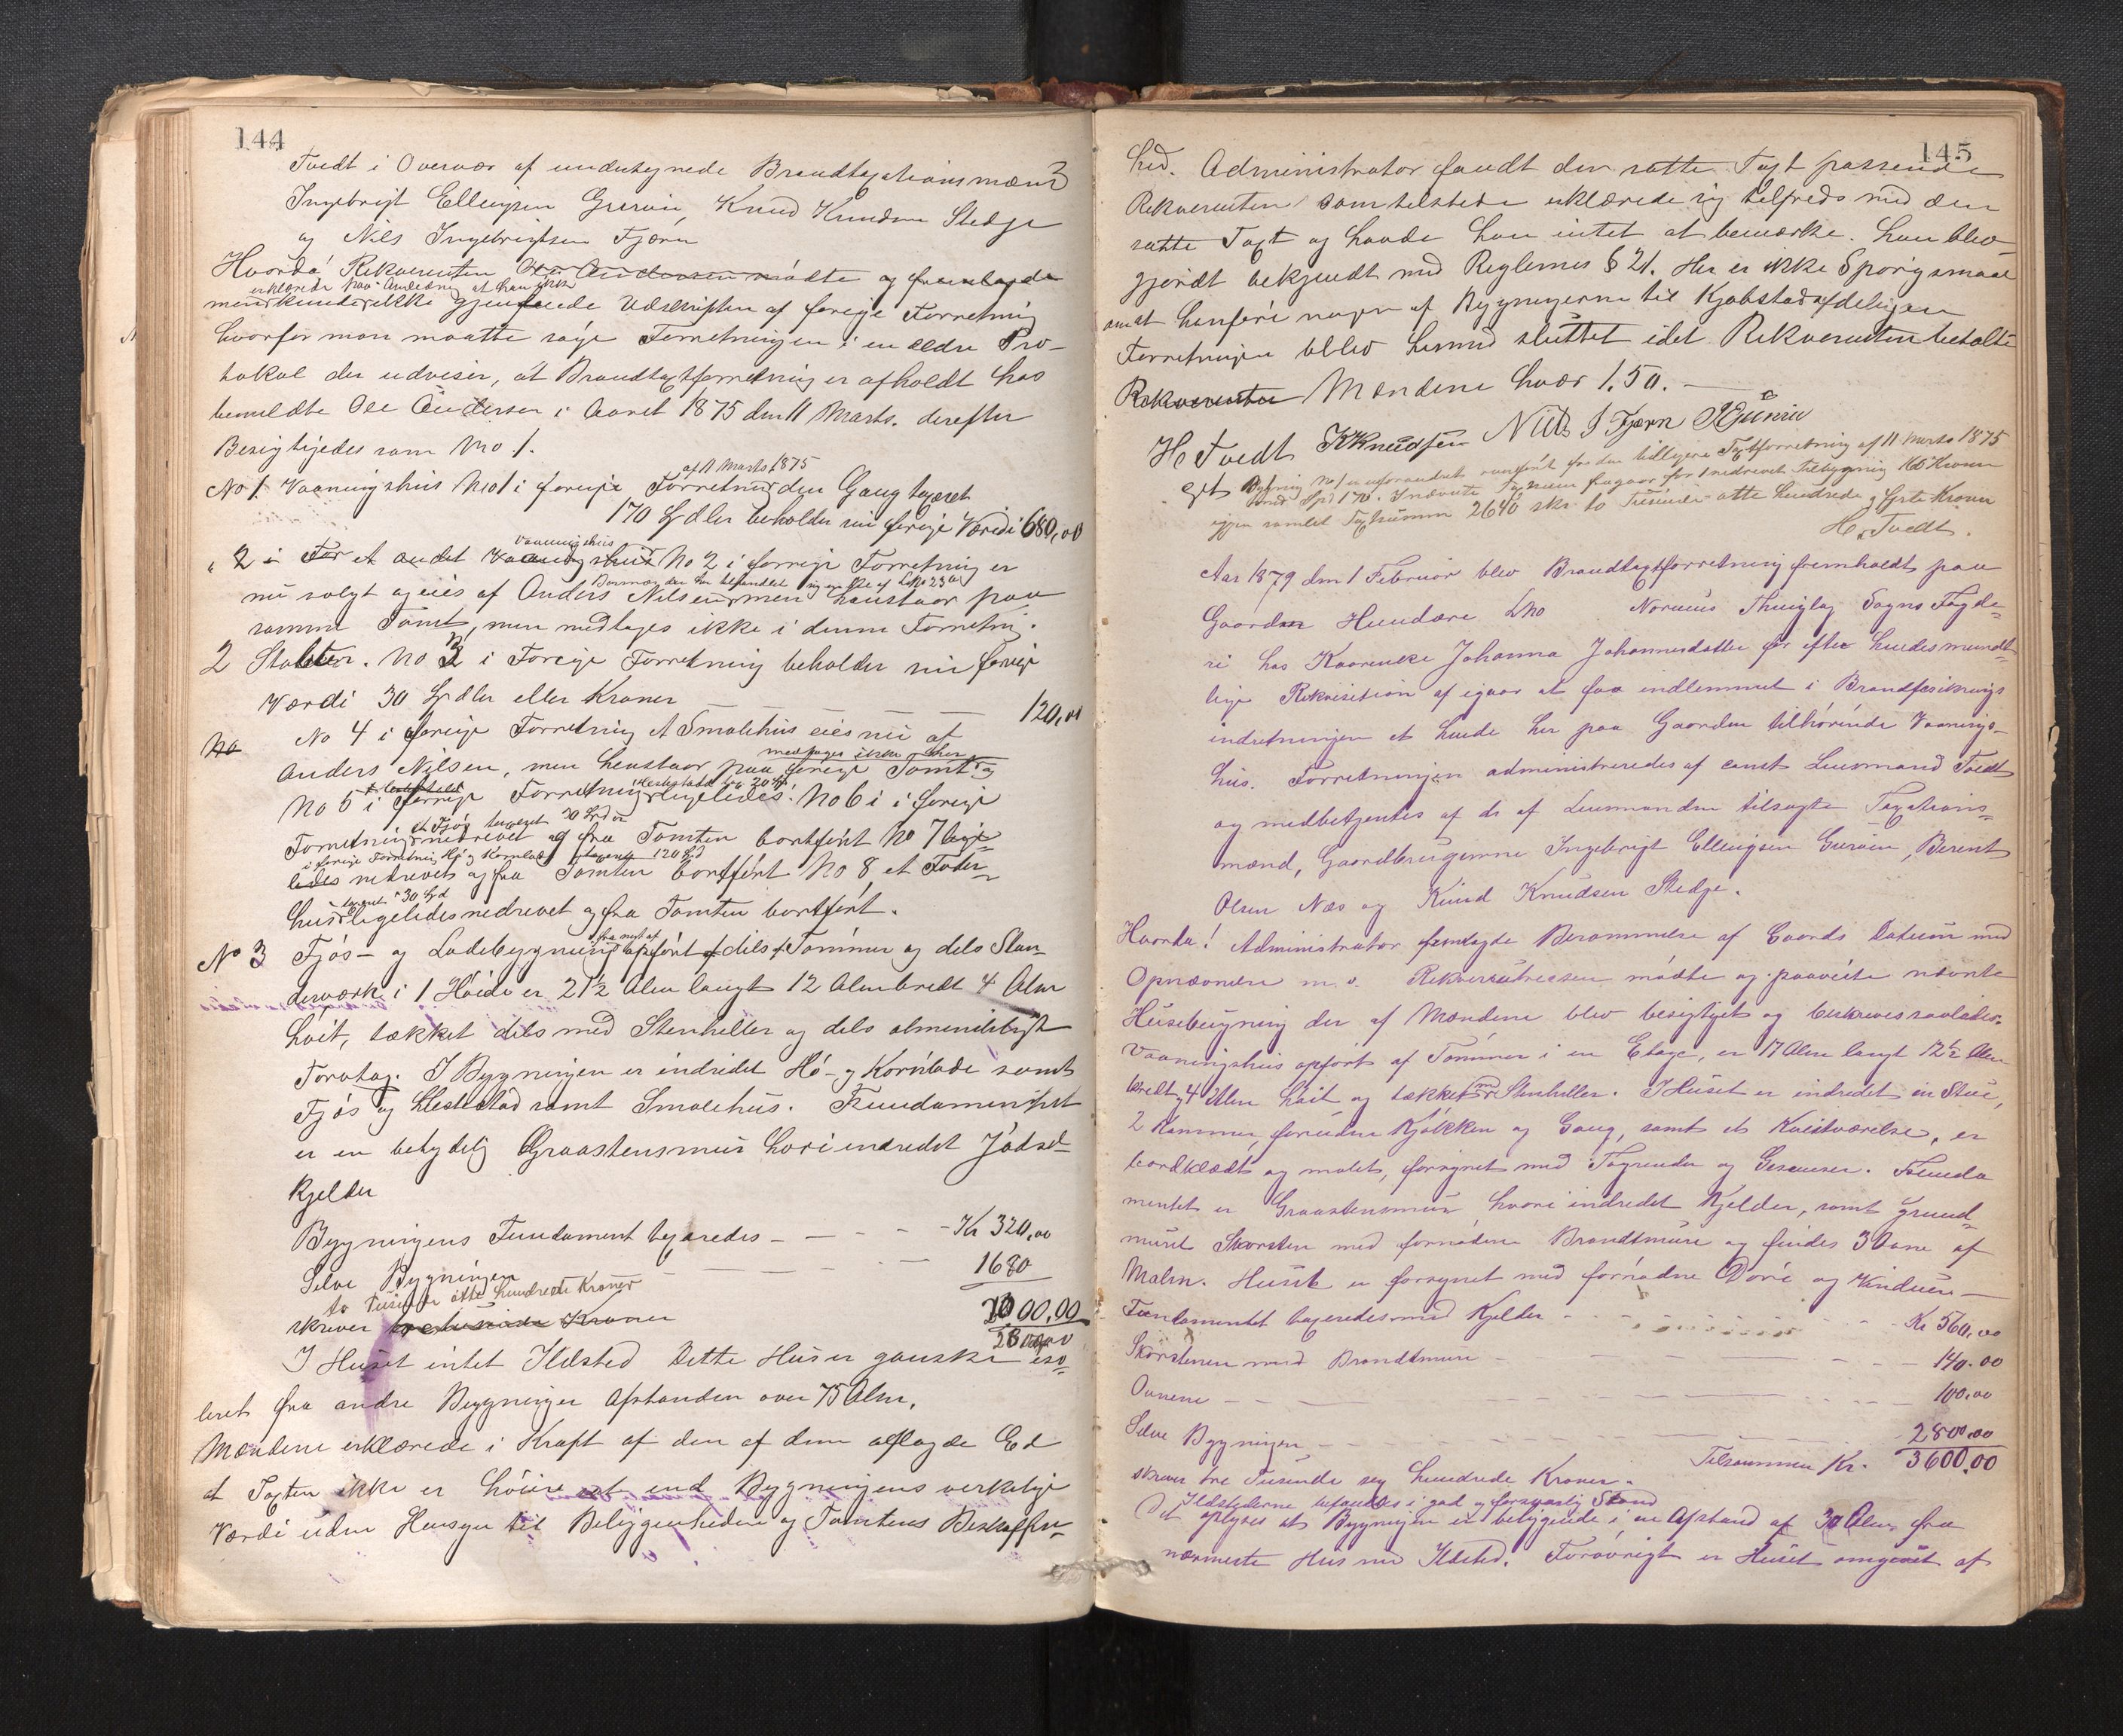 144
Tvedt i Overvær af undertegnede Brandtaxationsmænd
Ingebrigt Ellingsen Knud Knudsen Stedje
og Nils Ingebrigtsen Fjærn
Hvorda! Rekvirenten Ole Andersen mødte og fremlagde
erklærede paa Anledning at han ikke
men kunde ikke gjenfinde Udskriften af forrige Forretning
hvorfor man maatte søge Forretningen i en ældre Pro-
tokol der udviser, at Brandtaxtforretning er afholdt hos
bemeldte Ole Andersen i Aaret 1875 den 11 Marts. derefter
Besigtigedes som No 1.
af 11 Marts 1875
No 1 Vaaningshus No 1 i forrige Forretning den Gang taxeret
170 Spdlr beholder sin forrige Værdi 680,00
Vaaningshus
" 2 et andet No 2 i forrige Forretning er
nu solgt og eies af Anders Nilsen men henstaar paa
samme Tomt, men medtages ikke i denne Forretng.
2 Stabben. No 3 i Forrige Forretning beholder sin forrige
Værdi 30 Spdlr eller Kroner 120,00
No No 4 i forrige Forretning et Smalehus eies nu af
medtages ikke her
Anders Nilsen, men henstaar paa forrige Tomt og
No 5 i forrige Forretning ligeledes. No 6 i forrige
et Fjøs taxeret 30 Spdlr
Forretning nedrevet og fra Tomten bortført No 7 lige-
i forrige Forretning Hø og Kornlade taxeret 120 Spd
ledes nedrevet og fra Tomten bortført No 8 et Foder-
taxeret 30 Spd
hus ligeledes nedrevet og fra Tomten bortført.
fra nyt af
No 3 Fjøs- og Ladebygning opført dels af Tømmer og dels Stan-
derværk i 1 Høide er 21½ Alen langt 12 Alen bredt 4 Alen
høit, tækket dels med Stenheller og dels almindeligt
Torvtag. I Bygningen er indredet Hø- og Kornlade samt
Fjøs og Hestestad samt Smalehus. Fundamentet
er en betydelig Graastensmur hvori indredet Jødsel-
kjelder
Bygningens Fundament taxeredes - - - - Kr 320,00
Selve Bygningen - - - - 1680
to Tusinde otte hundrede Kroner
skriver totusinde Kroner 2000,00
2800,00
I Huset intet Ildsted Dette Hus er ganske iso-
leret fra andre Bygninger Afstanden over 75 Alen.
Mændene erklærede i Kraft af den af dem aflagde Ed
at Taxten ikke er høiere end Bygningens verkelige
Værdi uden Hensyn til Beliggenheden og Tomtens Beskaffen-
145
hed. Administrator fandt den satte Taxt passende
Rekvirenten som tilstede erklærede sig tilfreds med den
satte Taxt og havde han intet at bemærke. Han blev
gjordt bekjendt med Reglernes § 21. Her er ikke Spørgsmaal
om at henføre nogen af Bygningerne til Kjøbstadafdelingen
Forretningen blev hermed sluttet idet Rekvirenten betalte
Rekvirenten Mændene hver 1,50.
H. Tvedt K Knudsen Niels I Fjærn
Bygning No 1 er uforandret for den tidligere Taxtforretning af 11 Marts 1875
Spd 170.
igjen samlet Taxtsumm 2640 skr. to Tusinde otte hundrede og firti Kroner
H. Tvedt.
Aar 1879 den 1 Februar blev Brandtaxtforretning fremholdt paa
Gaarden Hundere Lno Norums Thinglag Sogns Fogde-
ri hos Johanna Johannesdatter for efter hendes mundt-
lige Rekvisition af igaar at faa indlemmet i Brandforsikrings
indretningen et hende her paa Gaarden tilhørende Vaanings-
hus. Forretningen administreredes af const Lensmand Tvedt
og medbetjentes af de af Lensmanden tilsagte Taxations-
mænd, Gaardbrugerne Ingebrigt Ellingsen Berent
Olsen Næs og Knud Knudsen Stedje.
Hvorda! Administrator fremlagde Berammelse af Gaards Datum med
Opnævnelse m. v. Rekvirentinden mødte og paaviste nævnte
Husebygning der af Mændene blev besigtiget og beskreves saaledes.
Vaaningshus opført af Tømmer i en Etage, er 17 Alen langt 12½ Alen
bredt, 4 Alen høit og tækket med Stenheller. I Huset er indredet en Stue,
2 Kammer, foruden Kjøkken og Gang, samt et Kvistværelse, er
bordklædt og malet, forsynet med Tagrender og Gesimser. Funda
mentet er Graastensmur hvori indredet Kjelder, samt grund-
muret Skorsten med fornødne Brandtmure og findes 3 Ovne af
Malm. Huset er forsynet med fornødne Døre og Vinduer
Fundamentet taxeredes med Kjelder - - - - Kr 560,00
Skorstenen med Brandtmure - - - 140.00
Ovnene - - - - 100,00
Selve Bygningen - - - - 2800,00
Tilsammen Kr. 3600,00
skriver tre Tusinde sex hundrede Kroner.
Ildstederne befandtes i god og forsvarlig Stand
Det oplyses at Bygningen er beliggende i en Afstand af 30 Alen fra
nærmeste Hus med Ildsted. Forøvrigt er Huset omgivet af